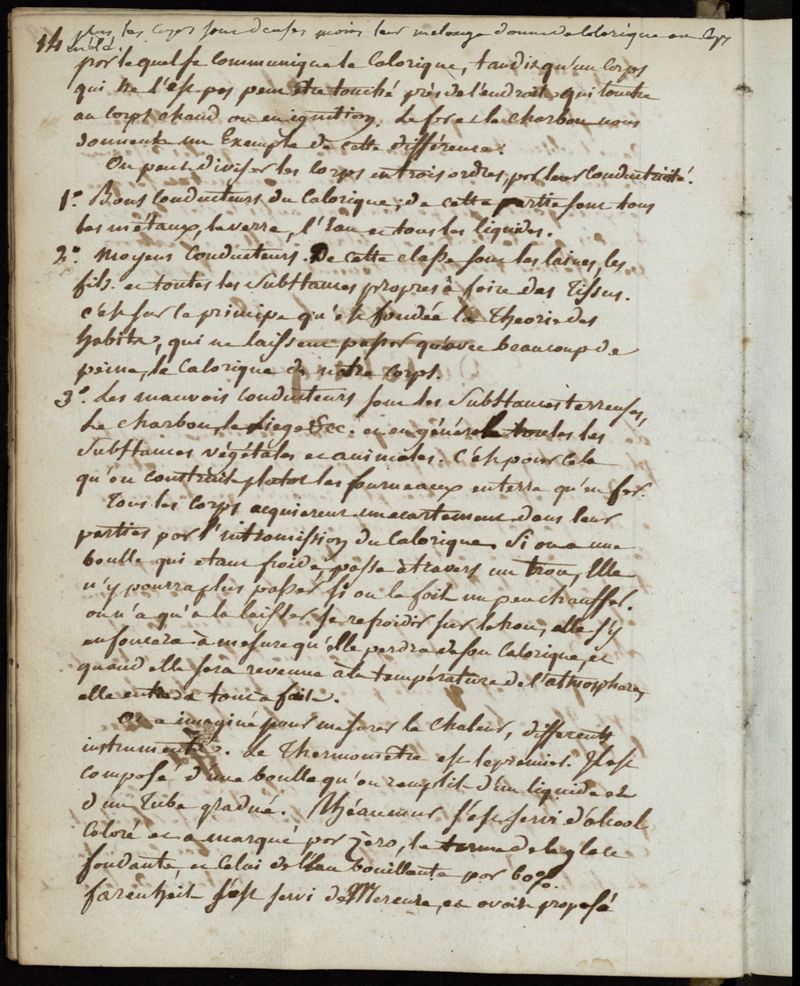 14 plus les corps sont denses moins leur melange donne de Calorique au corps
mélé.
par lequel se communique le Calorique, tandis qu'un Corps
qui ne l'est pas peut etre touché près de l'endroit qui touche
au corps chaud ou en ignition. Le fer et le charbon nous
donnent un Exemple de cette différence.
On peut diviser les Corps en trois ordres, par leur Conductricité.
1.º Bons Conducteurs du Calorique; de cette partie sont tous
les métaux, le verre, l'Eau et tous les liquides.
2.º Moyens Conducteurs. De cette classe sont les laines, les
fils. et toutes les Substances propres à faire des Tissus.
c'est sur ce principe qu'est fondée la Theorie des
habits, qui ne laissent passer qu'avec beaucoup de
peine, le Calorique de notre Corps.
3.º Les mauvais Conducteurs sont les Substances terreuses,
Le charbon, le Liege &c. et en général toutes les
Substances végétales et animales. C'est pour cela
qu'on construit plutot les fourneaux en terre qu'en fer.
Tous les Corps acquierent un ecartement dans leur
parties par l'intromission du Calorique. Si on a une
boulle qui etant froide, passe à travers un trou, Elle
n'y pourra plus passer si on la fait un peu chauffer.
on n'a qu'à la laisser se refroidir sur le trou, elle s'y
enfoncera à mesure qu'elle perdra de son Calorique, et
quand elle sera revenue à la température de l'atmosphere,
elle entrera tout à fait.
On a imaginé pour mesurer la Chaleur, différents
instruments. Le Thermometre est le premier. Il est
composé d'une boulle qu'on remplit d'un liquide et
d'un Tube gradué. Rhéaumur s'est servi d'alcool
Coloré et a marqué par zèro, le terme de la glace
fondante, et Celui de l'Eau bouillante par 80.º
farenheit s'est servi de Mercure, et avoit proposé